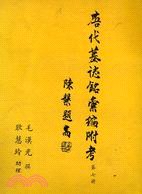 唐代墓誌銘彙編附考
第七冊
陳槃題耑
毛漢光 撰
耿慧玲 助理